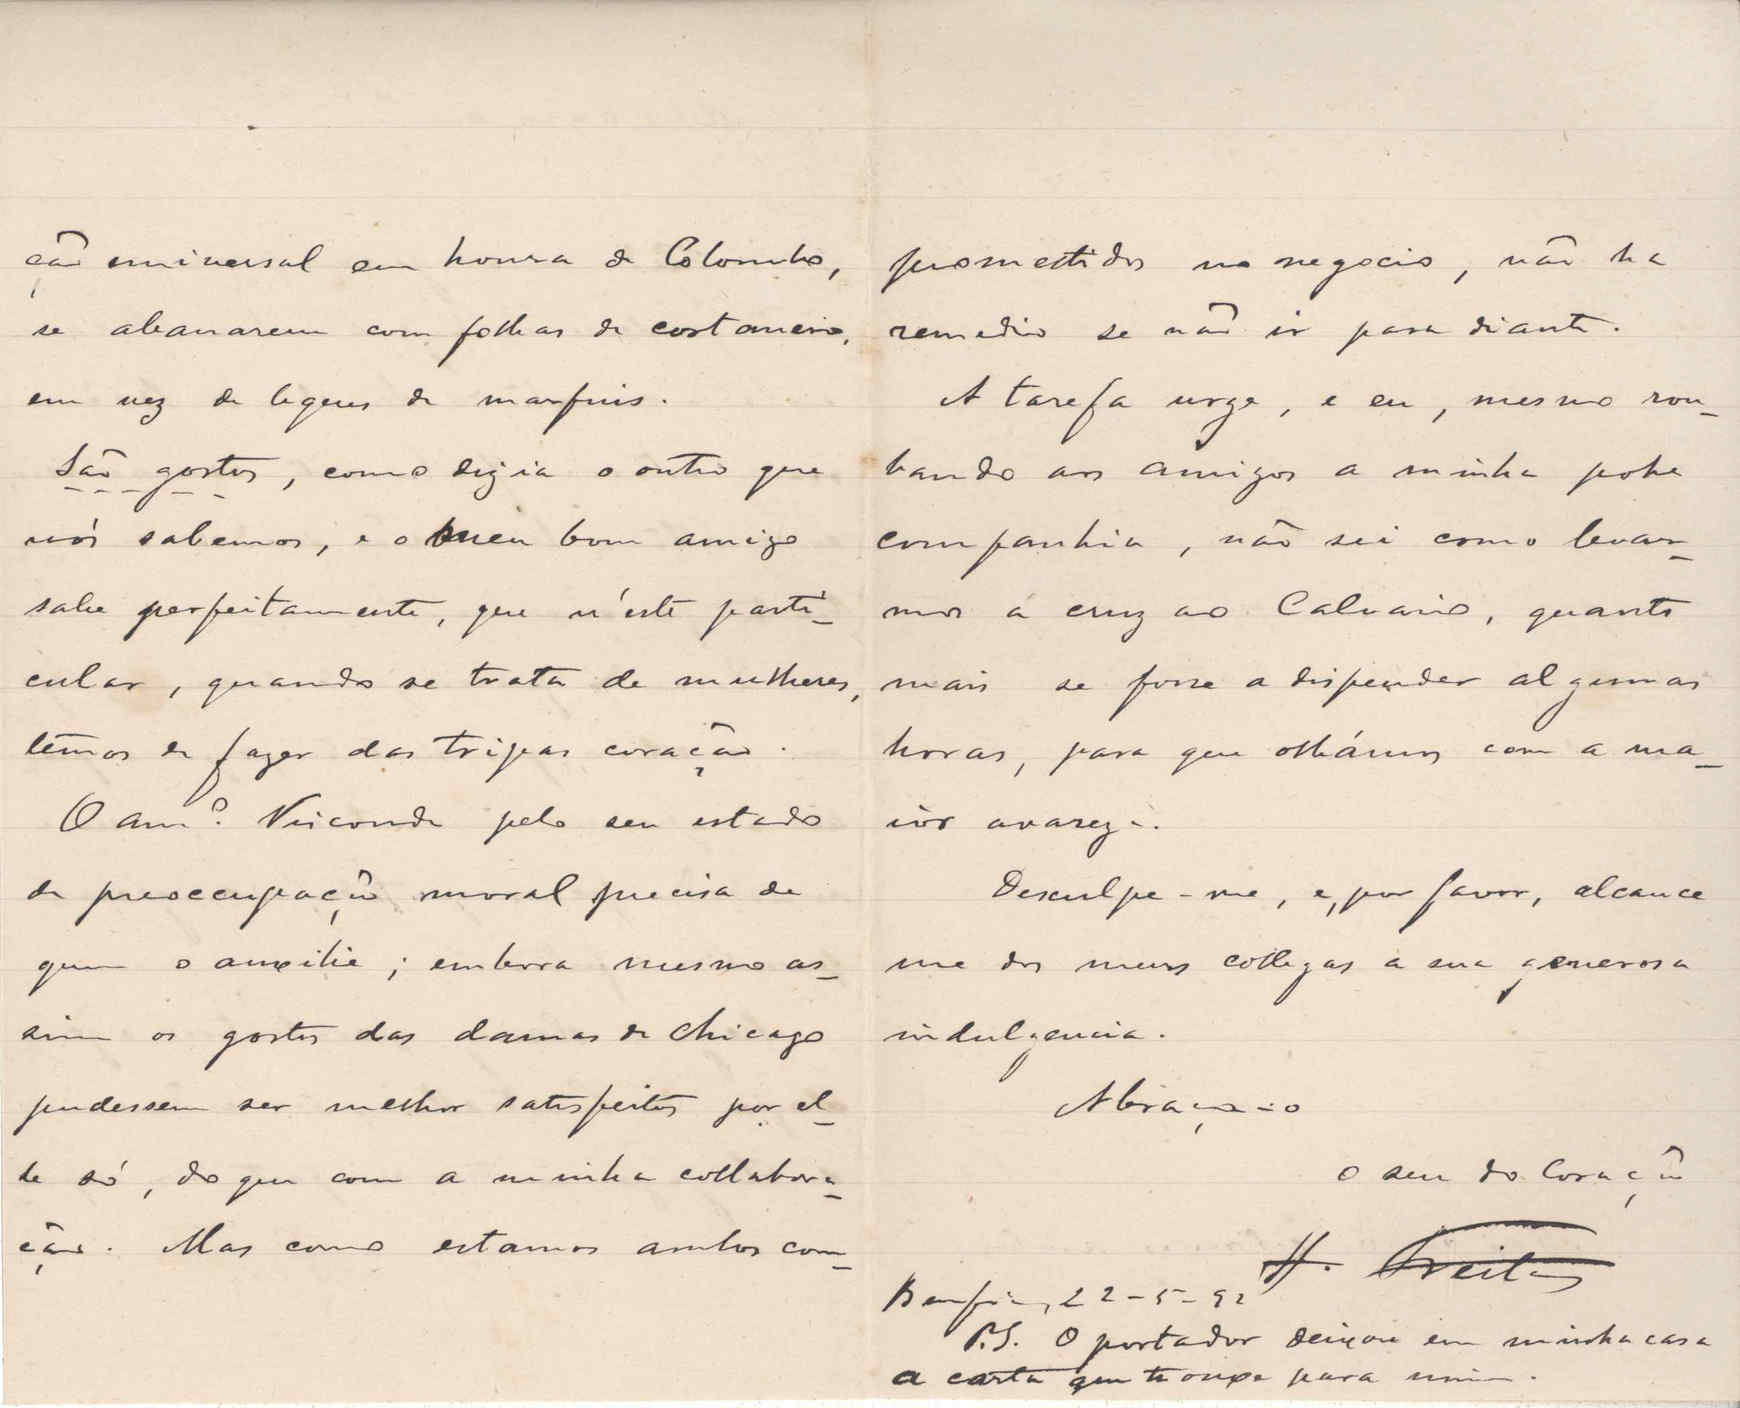 ção universal em honra de Colombo,
se abanarem com folhas de costaneira,
em vez de leques de marfins.
São gostos, como dizia o outro que
nós sabemos, e o meu bom amigo
sabe perfeitamente, que n'este parti-
cular, quando se trata de mulheres,
temos de fazer das tripas coração.
O am.º Visconde pelo seu estado
de preoccupação moral precisa de
quem o auxilie; embora mesmo as-
sim os gostos das damas de Chicago
pudessem ser melhor satisfeitos por el-
le só, do que com a minha collabora-
ção. Mas como estamos ambos com-
promettidos no negocio, não ha
remedio se não ir para diante.
A tarefa urge, e eu, mesmo rou-
bando aos amigos a minha pobre
companhia, não sei como levar-
mos a cruz ao Calvario, quanto
mais se fosse a dispender algumas
horas, para que olhámos com a ma-
ior avareza.
Desculpe-me, e, por favor, alcance
me dos meus collegas a sua generosa
indulgencia.
Abraça-o
o seu do Coração
H. Freitas
Bemfica, 22-5-92
P.S. O portador deixou em minha casa
a carta que trouxe para mim.